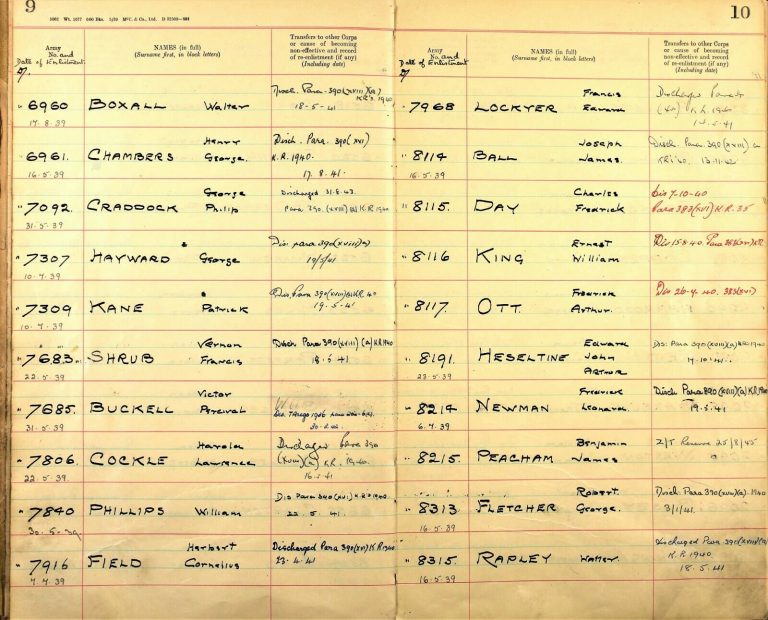 9
1602 Wt. 1677 600 Bks. 5/39 McC. & Co., Ltd.
Army
No. and
Date of Enlistment
NAMES (in full)
(Surname first, in block letters)
Transfers to other Corps
or cause of becoming
non-effective and record
of re-enlistment (if any)
(Including date)
6960 BOXALL Walter
Disch. Para. 390(XVIII)(a)
K.R's. 1940
18-5-41
17.8.39
6961. CHAMBERS Henry
George.
Disch. Para. 390(XVI)
K.R. 1940.
17.8.41.
16.5.39
7092. CRADDOCK George
Philip
Discharged 31.8.43.
Para 390.(XVIII)(a) K.R 1940
31.5.39
7307 HAYWARD George
Dis para 390(xviii)(a)
10.7.39
7309 KANE Patrick
Dis, Para 390(XVIII)(a) K.R. 40
19.5.41
10.7.39
7683 SHRUB Vernon
Francis
Disch Para 390(XVIII)(a) K.R 1940
18.5.41
22.5.39
7685. BUCKELL Victor
Percival
31.5.39
7806. COCKLE Harold
Lawrence
Discharged Para 390
(XVIII)(a) K.R. 1940.
16.5.41
22.5.39
7840 PHILLIPS William
Dis Para 390(XVI) K.R 1940
22.5.41.
30.5.39
7916 FIELD Herbert
Cornelius
Discharged Para 390(XVI) K.R 1940
23.4.41
7.7.39
10
Army
No. and
Date of Enlistment
NAMES (in full)
(Surname first, in block letters)
Transfers to other Corps
or cause of becoming
non-effective and record
of re-enlistment (if any)
(Including date)
7968 LOCKYER Francis
Edward
Discharged Para
K.R. 1940
8114 BALL Joseph
James.
Disch. Para 390(XVIII) a
KR 40. 13.11.42
16.5.39
8115. DAY Charles
Fredrick
Dis 7-10-40
Para 383(XVI) K.R. 35
8116 KING Ernest
William
Dis 15.8.40. Para 383(XVI) K.R.
8117. OTT. Fredrick
Arthur.
Dis 26-4.40. 383(XVI)
8191. HESELTINE Edward
John
Arthur
Dis: Para 390(XVIII)(a) K.R. 1940.
17.10.41.
23.5.39
8214 NEWMAN Fredrick
Leonard.
Disch Para 390(XVIII)(a) K.R 1940
19.5.41
6.7.39
8215. PEACHAM Benjamin
James
Z/T Reserve 25/8/45
8313 FLETCHER Robert.
George.
Disch. Para 390(XVIII)(a). 1940
3/1/41.
16.5.39
8315. RAPLEY Walter.
Discharged Para 390(XVIII)(a)
K.R 1940
18.5.41
16.5.39